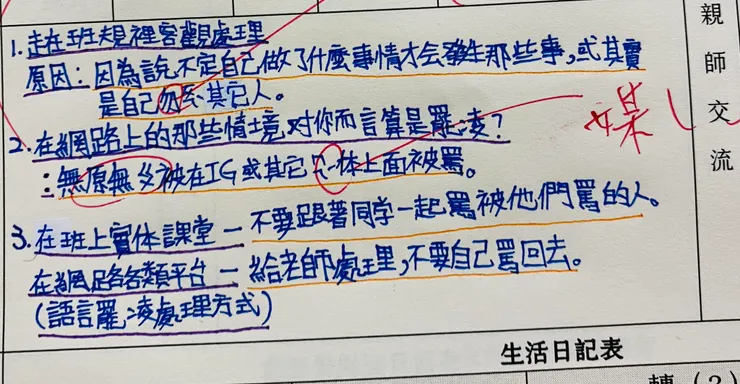 1.走在班規裡客觀處理
原因：因為說不定自己做了什麼事情才会發生那些事，或其實
是自己勿系其它人。
2.在網路上的那些情境，对你而言算是罷凌？
：無原無ㄠ被在IG或其它ㄇㄟ体上面被罵。
媒
3.在班上實体課堂－不要跟著同學一起罵被他們罵的人。
在網路各類平台－給老師處理，不要自己罵回去。
(語言罷凌處理方式)
親師交流
生活日記表